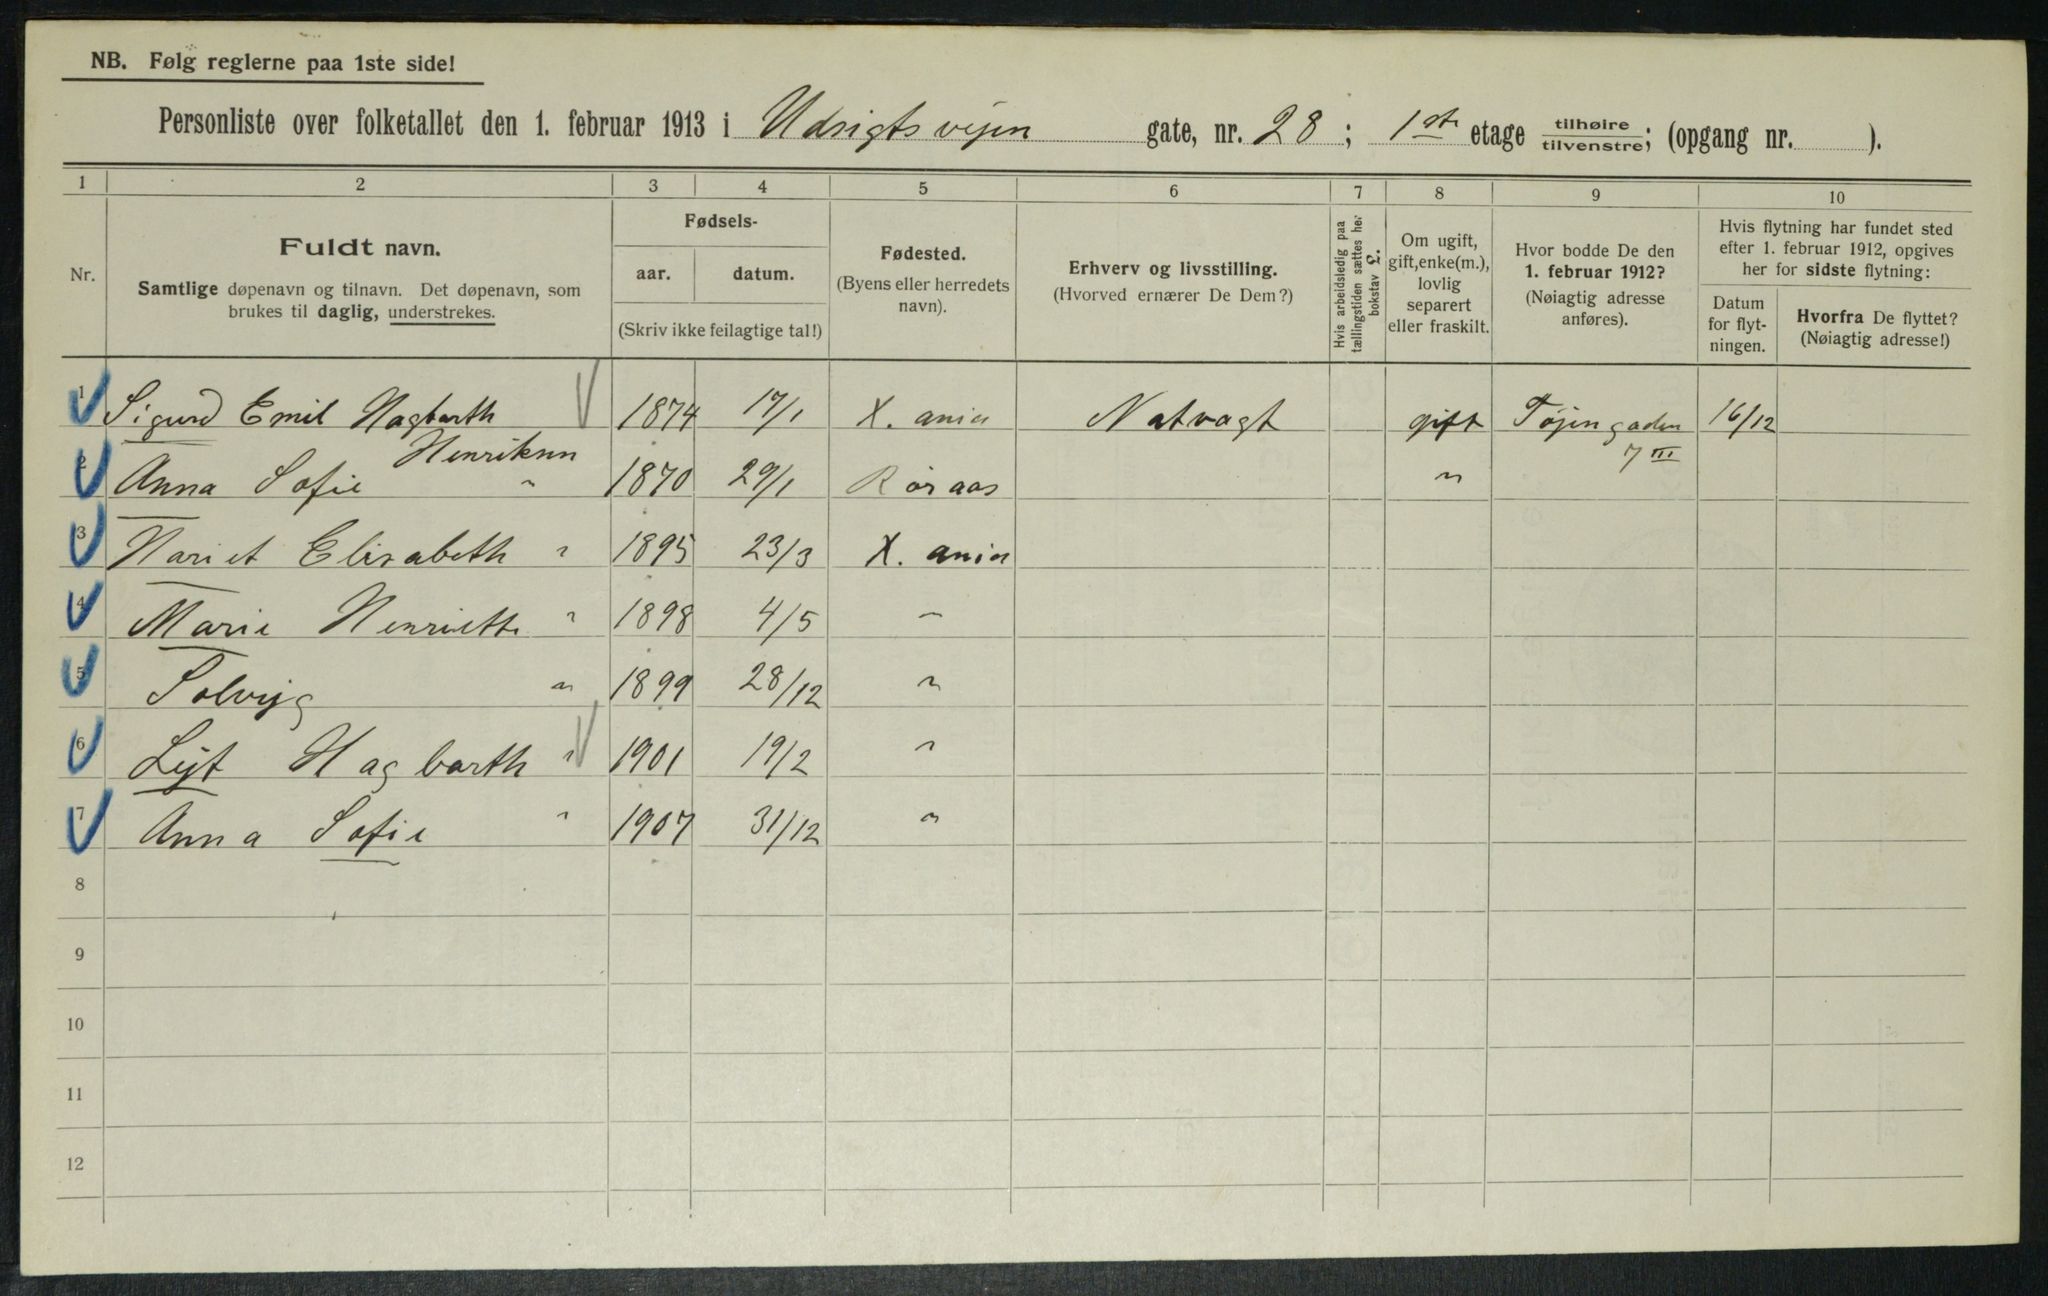 NB. Følg reglerne paa 1ste side!
Personliste over folketallet den 1. februar 1913 i Udsigtsvejen gate, nr. 28; 1ste etage tilhøire/tilvenstre; (opgang nr. ).
1 2 3 4 5 6 7 8 9 10
Nr.
Fuldt navn.
Samtlige døpenavn og tilnavn. Det døpenavn, som
brukes til daglig, understrekes.
Fødsels-
aar. datum.
(Skriv ikke feilagtige tal!)
Fødested.
(Byens eller herredets
navn).
Erhverv og livsstilling.
(Hvorved ernærer De Dem?)
Hvis arbeidsledig paa
tællingstiden sættes her
bokstav L.
Om ugift,
gift, enke(m.),
lovlig
separert
eller fraskilt.
Hvor bodde De den
1. februar 1912?
(Nøiagtig adresse
anføres).
Hvis flytning har fundet sted
efter 1. februar 1912, opgives
her for sidste flytning:
Datum
for flyt-
ningen.
Hvorfra De flyttet?
(Nøiagtig adresse!)
1 Sigurd Emil Hagbarth 1874 17/1 X.ania Natvagt gift Tøjengaden 16/12
Henriksen 7 III
2 Anna Sofie " 1870 29/1 Röraas "
3 Hariet Elisabeth " 1895 23/3 X.ania
4 Marie Henriette " 1898 4/5 "
5 Solveig " 1899 28/12 "
6 Leif Hagbarth " 1901 19/2 "
7 Anna Sofie " 1907 31/12 "
8
9
10
11
12